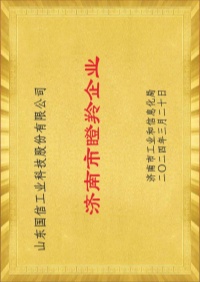 山东国信工业科技股份有限公司
济南市瞪羚企业
济南市工业和信息化局
二〇二四年三月二十日